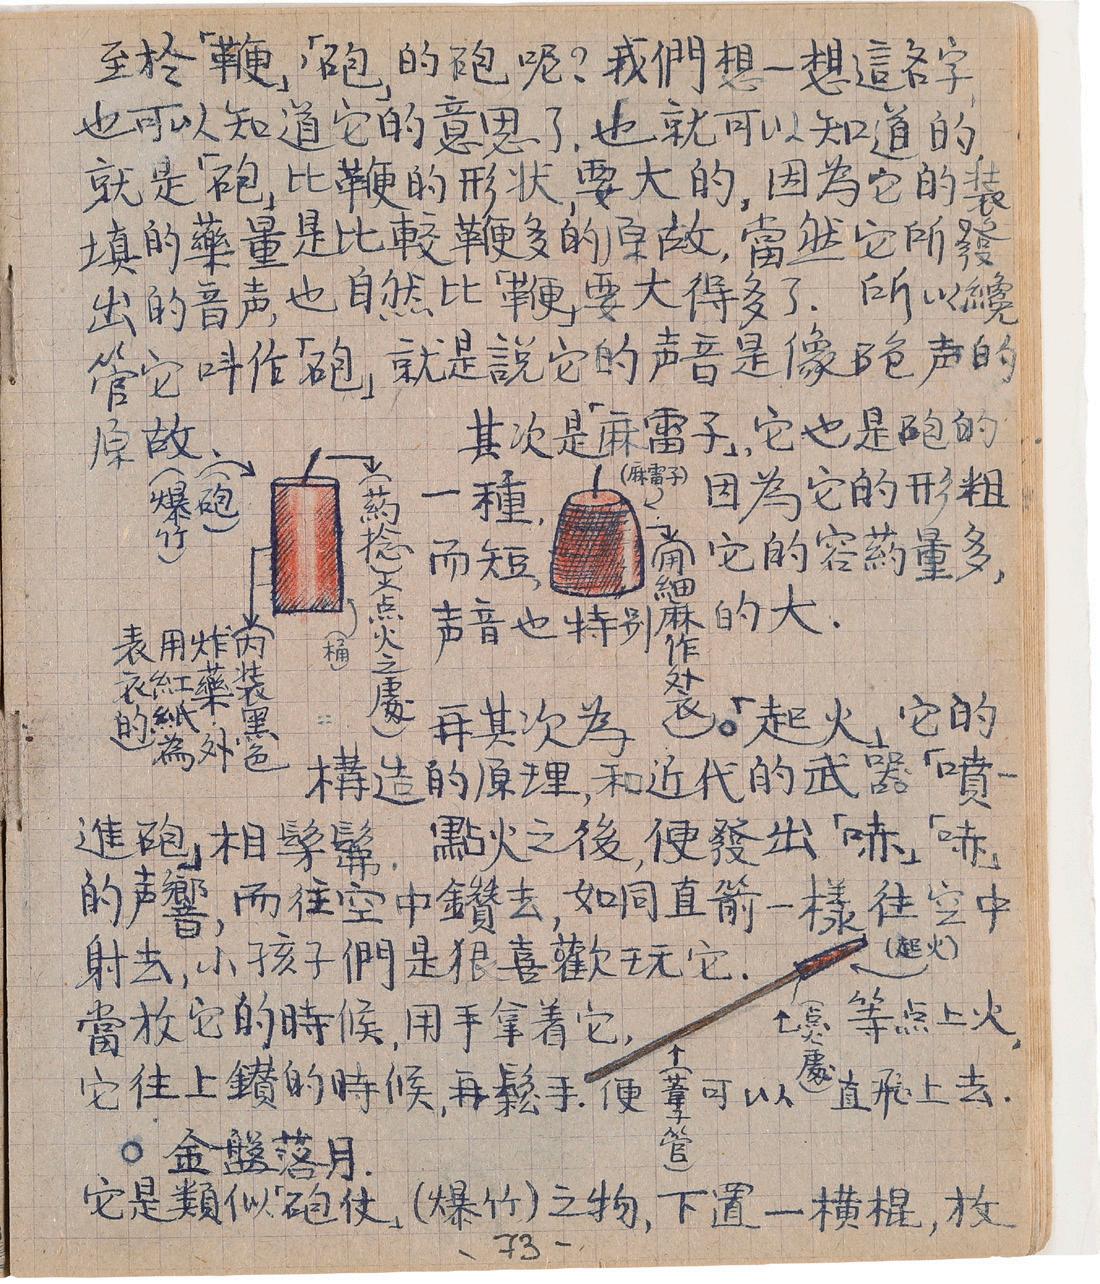 至於「鞭」「砲」的砲呢？我們想一想這名字，
也可以知道它的意思了．也就可以知道的，
就是「砲」比鞭的形状，要大的，因為它的裝
填的藥量是比較鞭多的原故，當然它所發
出的音声，也自然比「鞭」要大得多了．所以纔
管它叫作「砲」就是說它的声音是像砲声的
原故．
其次是「麻雷子」，它也是砲的
一種，因為它的形粗
而短，它的容葯量多，
声音也特別的大．
（砲）
（爆竹）
（葯捻）（点火之處）
（桶）
內裝黑色
炸藥．外
用紅紙為
表衣的）
（麻雷子）
（用細麻作外衣）
再其次為「起火」它的
構造的原理，和近代的武器「噴-
進砲」相髣髴．點火之後，便發出「哧」「哧」
的声響，而往空中鑽去，如同直箭一樣往空中
射去，小孩子們是狠喜歡玩它．
當放它的時候，用手拿着它，等点上火，
它往上鑽的時候，再鬆手．便可以直飛上去．
（起火）
（点火處）
（葦子管）
○金盤落月．
它是類似「砲仗」（爆竹）之物，下置一橫棍，放
-73-